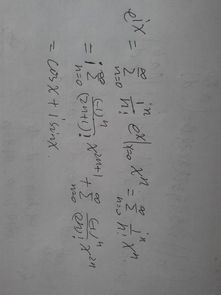 e^{ix} = \sum_{n=0}^{\infty} \frac{i^n}{n!} e^x|_{x=0} x^n = \sum_{n=0}^{\infty} \frac{i^n}{n!} x^n
= i \sum_{n=0}^{\infty} \frac{(-1)^n}{(2n+1)!} x^{2n+1} + \sum_{n=0}^{\infty} \frac{(-1)^n}{(2n)!} x^{2n}
= cosx + i sinx.